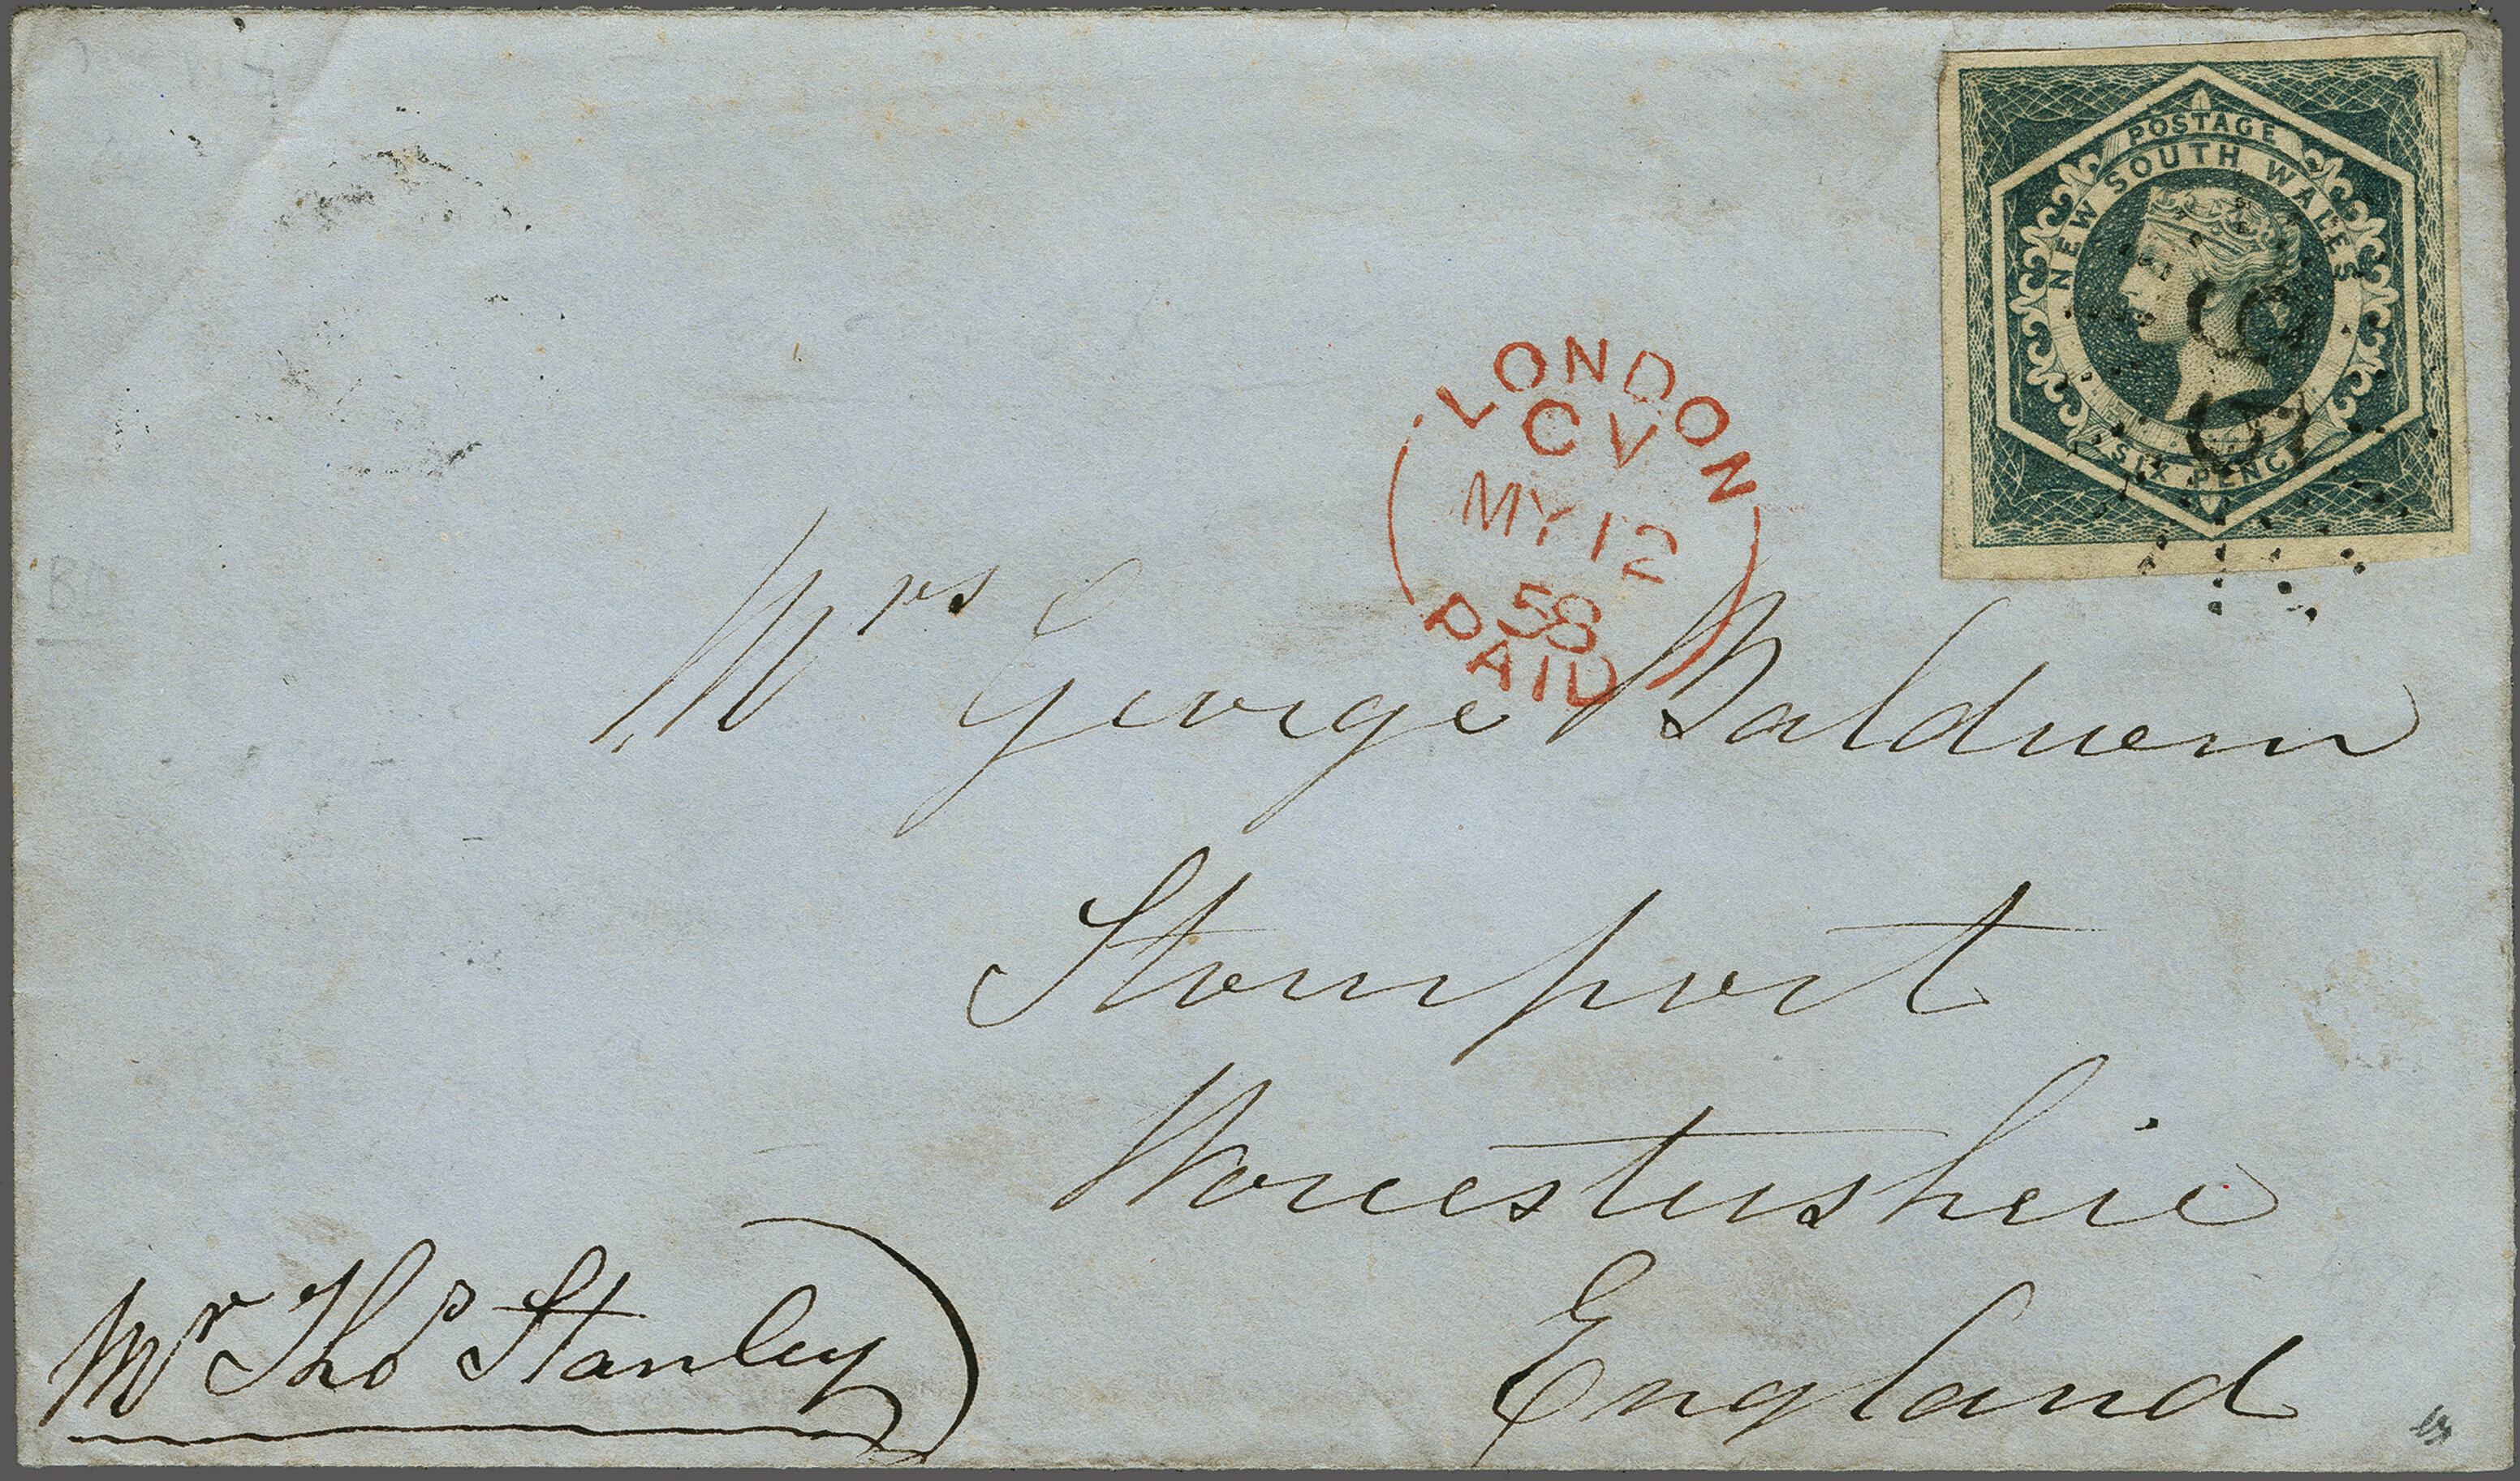 POSTAGE
NEW SOUTH WALES
SIX PENCE
LONDON
CV
MY 12
58
PAID
Mrs George Baldwin
Stourport
Worcestershire
England
Mr Thos Stanley